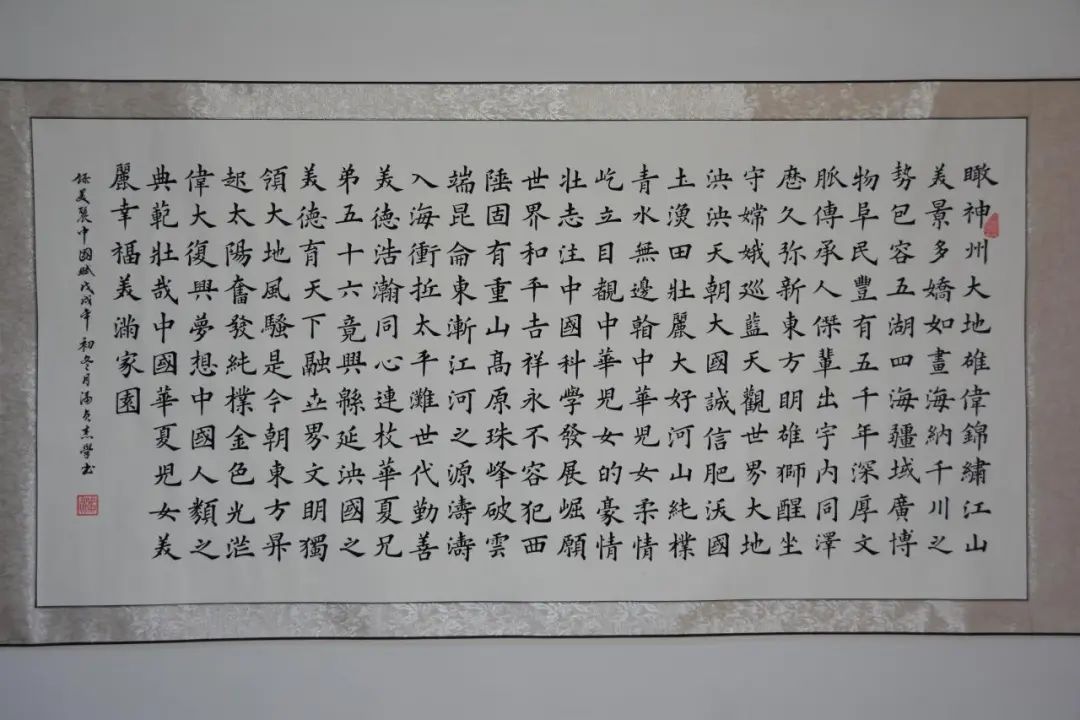 瞰神州大地雄偉錦繡江山
美景多嬌如畫海納千川之
勢包容五湖四海疆域廣博
物阜民豐有五千年深厚文
脈傳承人傑輩出宇內同澤
歷久弥新東方明雄獅醒坐
守嫦娥巡藍天觀世界大地
泱泱天朝大國誠信肥沃國
土漠田壯麗大好河山純樸
青水無邊翰中華兒女柔情
屹立目覩中華兒女的豪情
壯志注中國科學發展崛願
世界和平吉祥永不容犯西
陲固有重山高原珠峰破雲
端昆侖東漸江河之源濤濤
入海衝拞太平灘世代勤善
美德浩瀚同心連枝華夏兄
弟五十六竟興緜延泱國之
美德育天下融立界文明獨
領大地風騷是今朝東方昇
起太陽奮發純樸金色光茫
偉大復興夢想中國人類之
典範壯哉中國華夏兒女美
麗幸福美滿家園
錄美麗中國賦戊戌年初冬月潘志學书